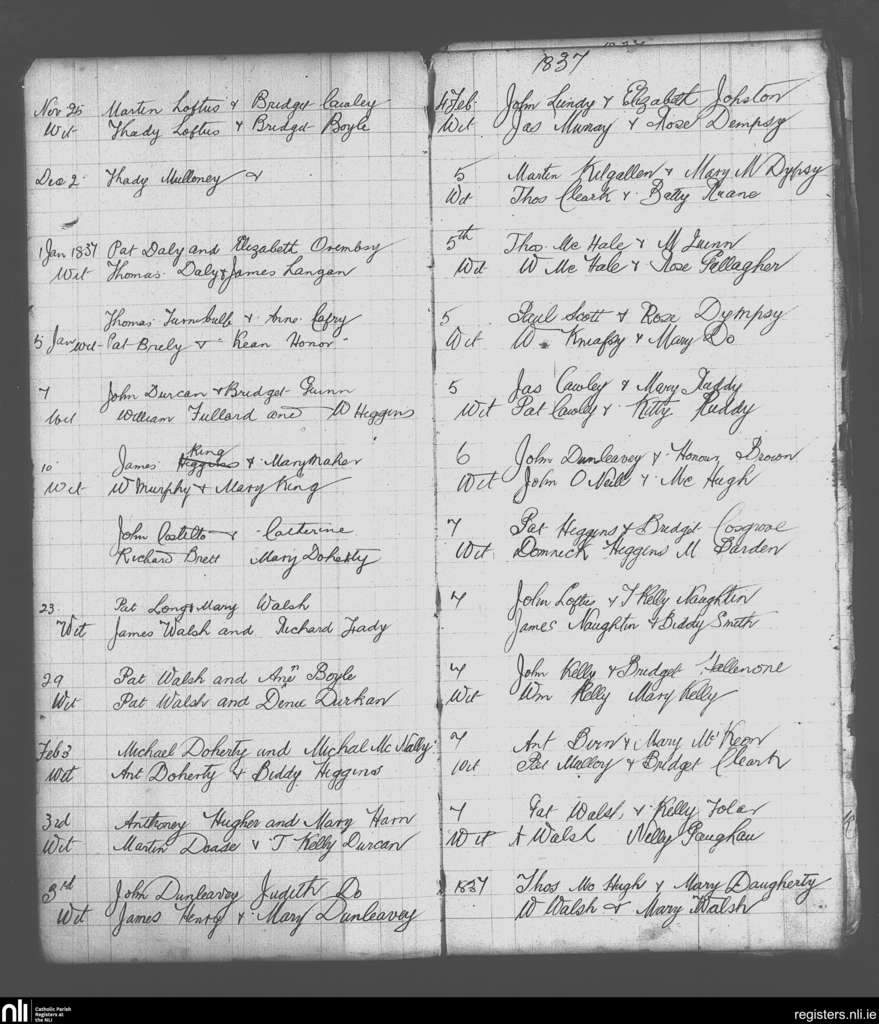 Nov 25 Martin Loftus & Bridget Cawley
Wit Thady Loftus & Bridget Boyle
Dec 2 Thady Mulloney &
1 Jan 1837 Pat Daly and Elizabeth Ormbsy
Wit Thomas Daly & James Langan
Thomas Turnbulle & Anne Cafry
5 Jan Wit Pat Brely & Kean Honor
7 John Durcan & Bridget Guinn
Wit William Fullard and W Higgins
King
10 James Higgins & Mary Maher
Wit W Murphy & Mary King
John Costello & Catherine
Richard Brett Mary Doherty
23 Pat Long & Mary Walsh
Wit James Walsh and Richard
29 Pat Walsh and Ann Boyle
Wit Pat Walsh and Durkan
Feb 3 Michael Doherty and Michal Mc Nally
Wit Ant Doherty & Biddy Higgins
3rd Anthoney Hugher and Mary Harn
Wit Martin & T Kelly Durcan
3rd John Dunleavey Judith Do
Wit James Henry & Mary Dunleavey
1837
4 Feb John Lundy & Elizabeth Johston
Wit Jas Murray & Rose Dempsy
5 Martin Kilgallen & Mary M Dypsy
Wit Thos Cleark & Batty Ruane
5th Thos Mc Hale & M Guinn
Wit W Mc Hale & Rose Gallagher
5 Paul Scott & Rose Dympsy
Wit W Kneafsy & Mary Do
5 Jas Cawley & Mary Ruddy
Wit Pat Cawley & Kitty Ruddy
6 John Dunleavey & Honour Brown
Wit John O Neill & Mc Hugh
7 Pat Higgins & Bridget Cosgrove
Wit Domnick Higgins M Barden
7 John Loftus & T Kelly Naughtin
James Naughtin & Biddy Smith
7 John Kelly & Bridget
Wit Wm Kelly Mary Kelly
7 Ant Birn & Mary Mc Keon
Wit Pat Mulloy & Bridget Cleark
7 Pat Walsh & Kelly Folar
Wit A Walsh Nelly Gaughan
1837 Thos Mc Hugh & Mary Daugherty
W Walsh & Mary Walsh
nli Catholic Parish Registers at the NLI
registers.nli.ie